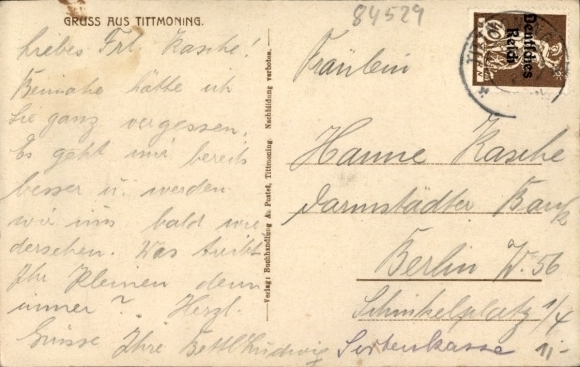 GRUSS AUS TITTMONING.
84529
Liebes Frl. Kasche!
Beinahe hätte ich
Sie ganz vergessen.
Es geht mir bereits
besser u. werden
wir uns bald wie
dersehen. Was treibt
Ihr Kleinen denn
immer? Herzl.
Grüsse Ihre
Verlag: Buchhandlung Au Pustet, Tittmoning. Nachbildung verboten.
Deutsches
Reich
Fräulein
Hanne Kasche
Darmstädter Bank
Berlin W. 56
Schinkelplatz 1/4
Sortenkasse
1,-